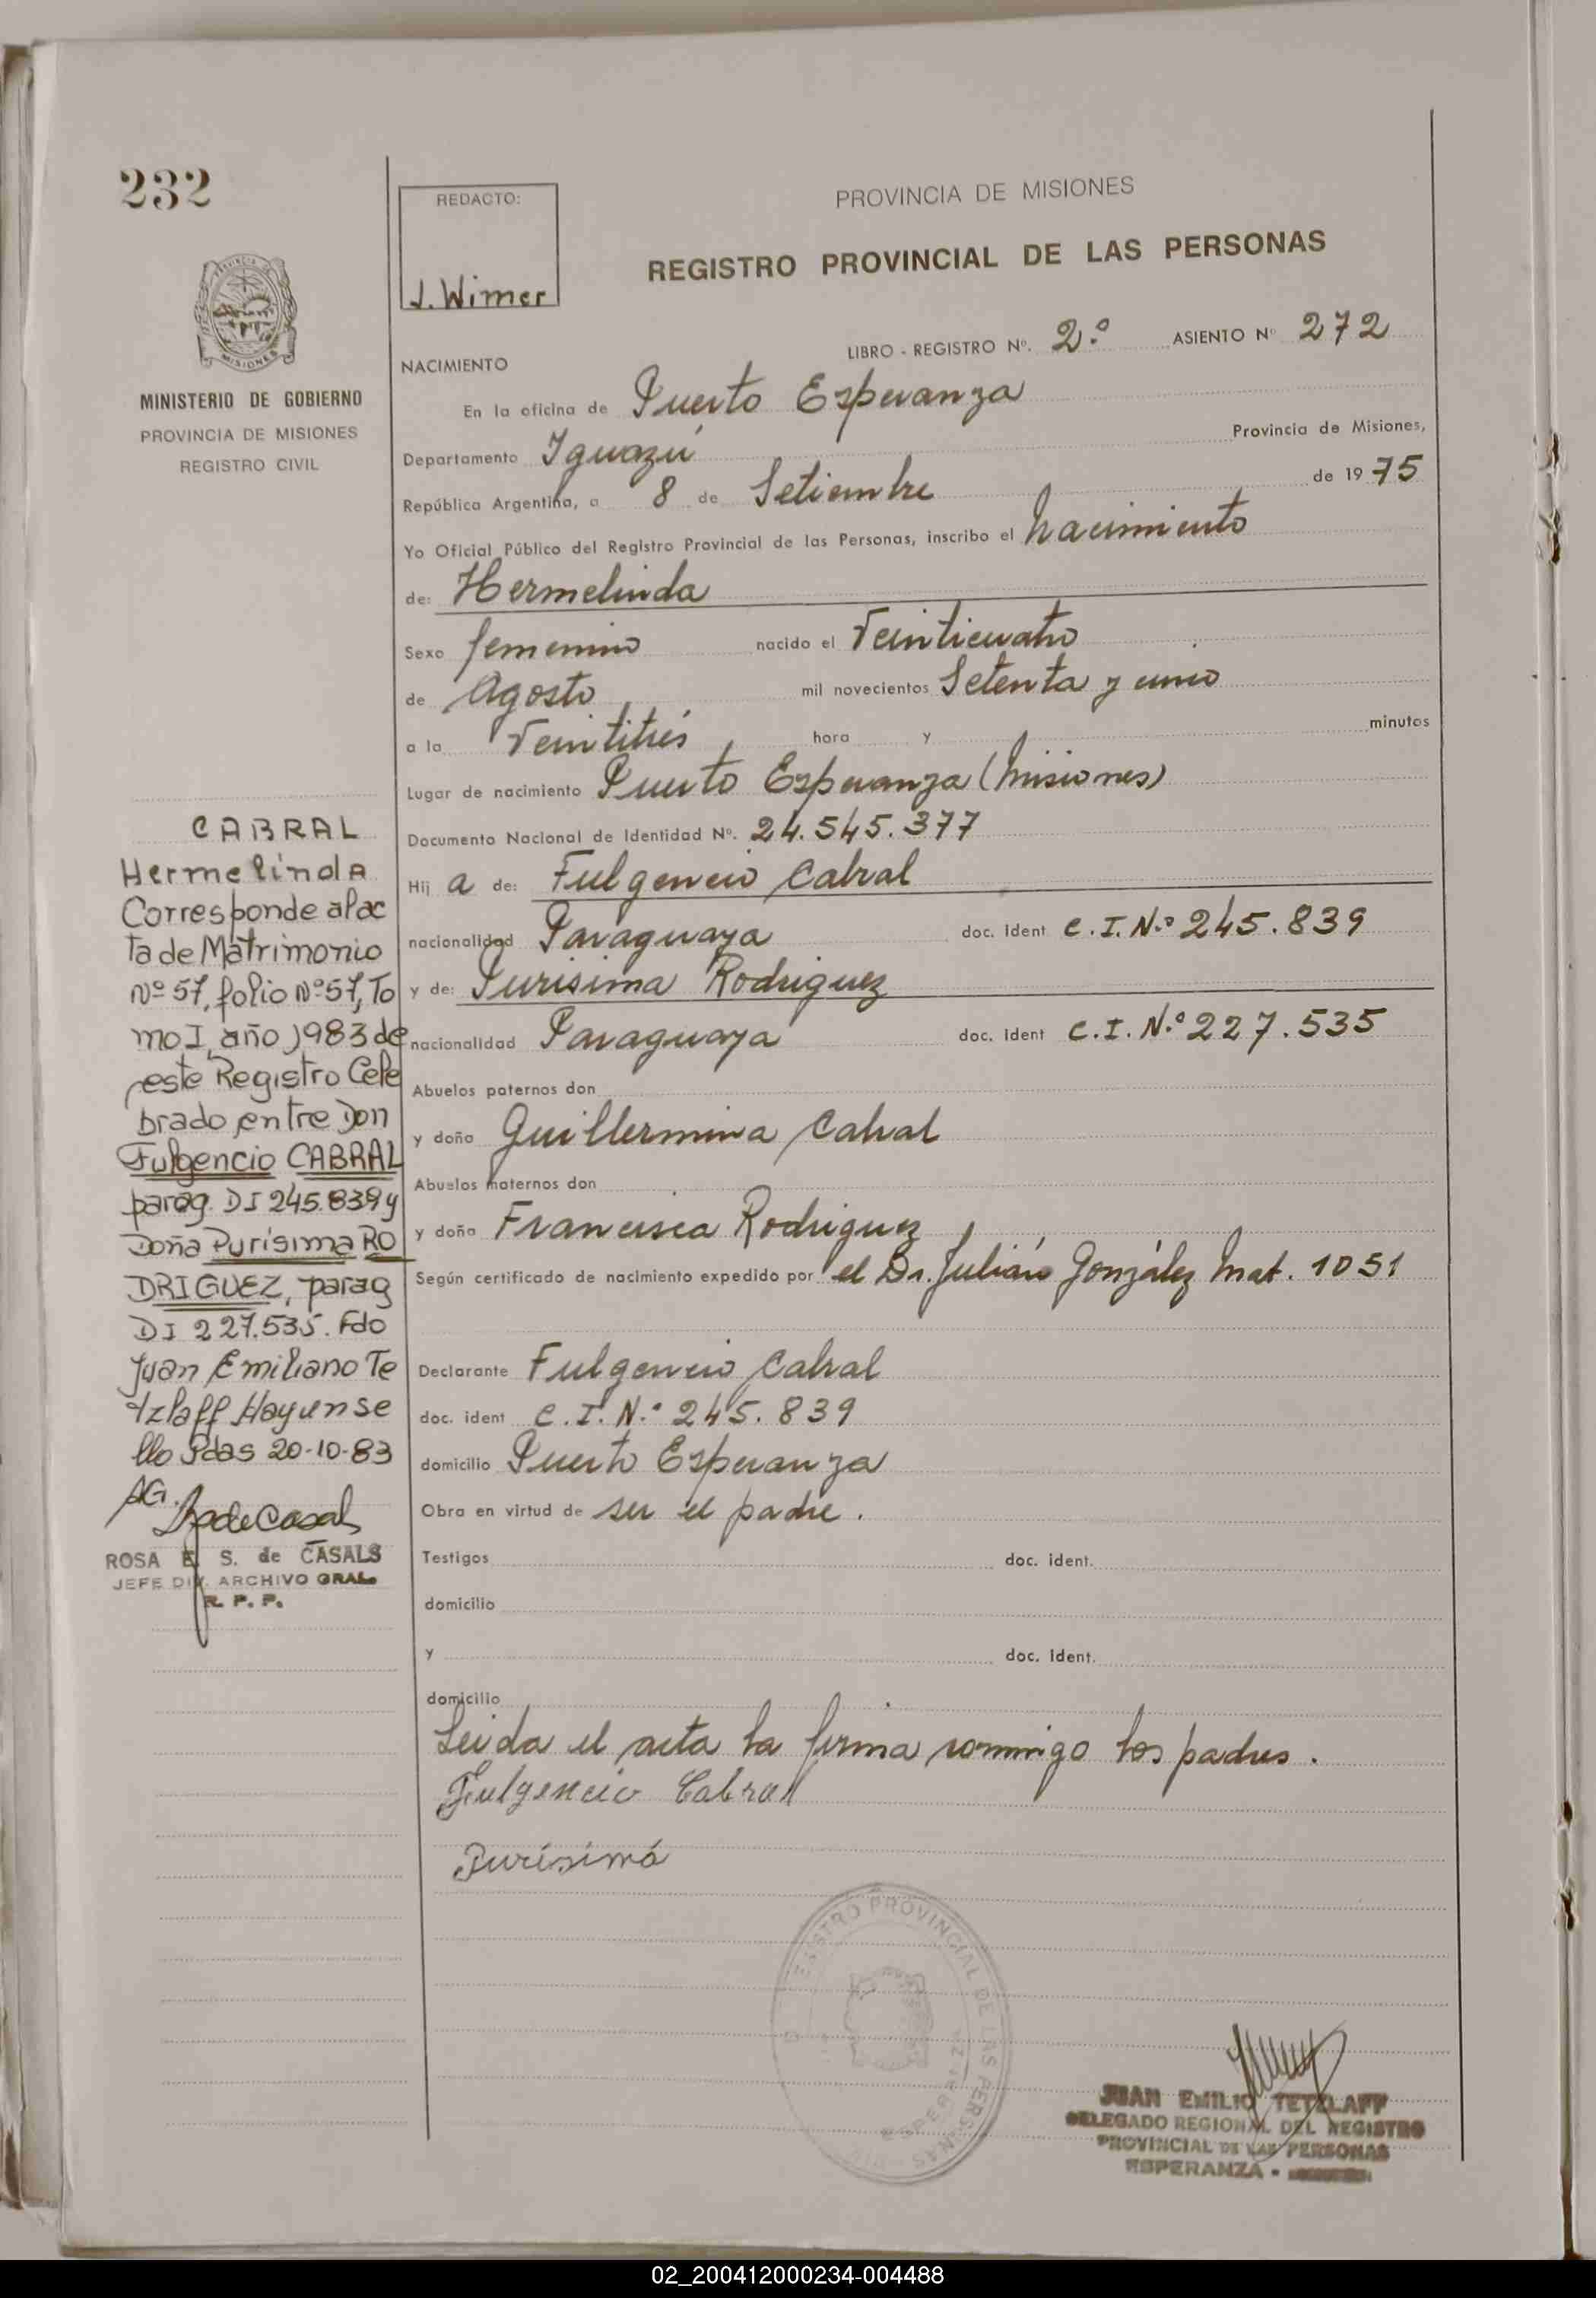 232
MINISTERIO DE GOBIERNO
PROVINCIA DE MISIONES
REGISTRO CIVIL
CABRAL
Hermelinda
Corresponde al ac
ta de Matrimonio
Nº 57, folio Nº 57, To
mo I, año 1983 de
este Registro Cele
brado entre Don
Fulgencio CABRAL
parag. DI 245.839 y
Doña Purísima RO
DRIGUEZ, parag
DI 227.535. Fdo
Juan Emiliano Te
tzlaff Hay un se
llo Pdas 20-10-83
AG.
ROSA E. S. de CASALS
JEFE DIV. ARCHIVO GRAL.
R. P. P.
REDACTO:
J. Wimer
PROVINCIA DE MISIONES
REGISTRO PROVINCIAL DE LAS PERSONAS
LIBRO - REGISTRO Nº. 2.º ASIENTO Nº 272
NACIMIENTO
En la oficina de Puerto Esperanza
Departamento Iguazú Provincia de Misiones,
República Argentina, a 8 de Setiembre de 1975
Yo Oficial Público del Registro Provincial de las Personas, inscribo el nacimiento
de: Hermelinda
Sexo femenino nacido el Veinticuatro
de Agosto mil novecientos Setenta y uno
a la Veintitrés hora y minutos
Lugar de nacimiento Puerto Esperanza (Misiones)
Documento Nacional de Identidad Nº. 24.545.377
Hij a de: Fulgencio Cabral
nacionalidad Paraguaya doc. ident C.I.N.º 245.839
y de: Purisima Rodriguez
nacionalidad Paraguaya doc. ident C.I.N.º 227.535
Abuelos paternos don
y doña Guillermina Cabral
Abuelos maternos don
y doña Francisca Rodriguez
Según certificado de nacimiento expedido por el Dr. Julián González Mat. 1051
Declarante Fulgencio Cabral
doc. ident C.I. N.º 245.839
domicilio Puerto Esperanza
Obra en virtud de ser el padre.
Testigos doc. ident.
domicilio
y doc. ident.
domicilio
Leida el acta la firma conmigo los padres.
Fulgencio Cabral
Purísimá
REGISTRO PROVINCIAL DE LAS PERSONAS
JUAN EMILIO TETZLAFF
DELEGADO REGIONAL DEL REGISTRO
PROVINCIAL DE LAS PERSONAS
ESPERANZA -
02_200412000234-004488